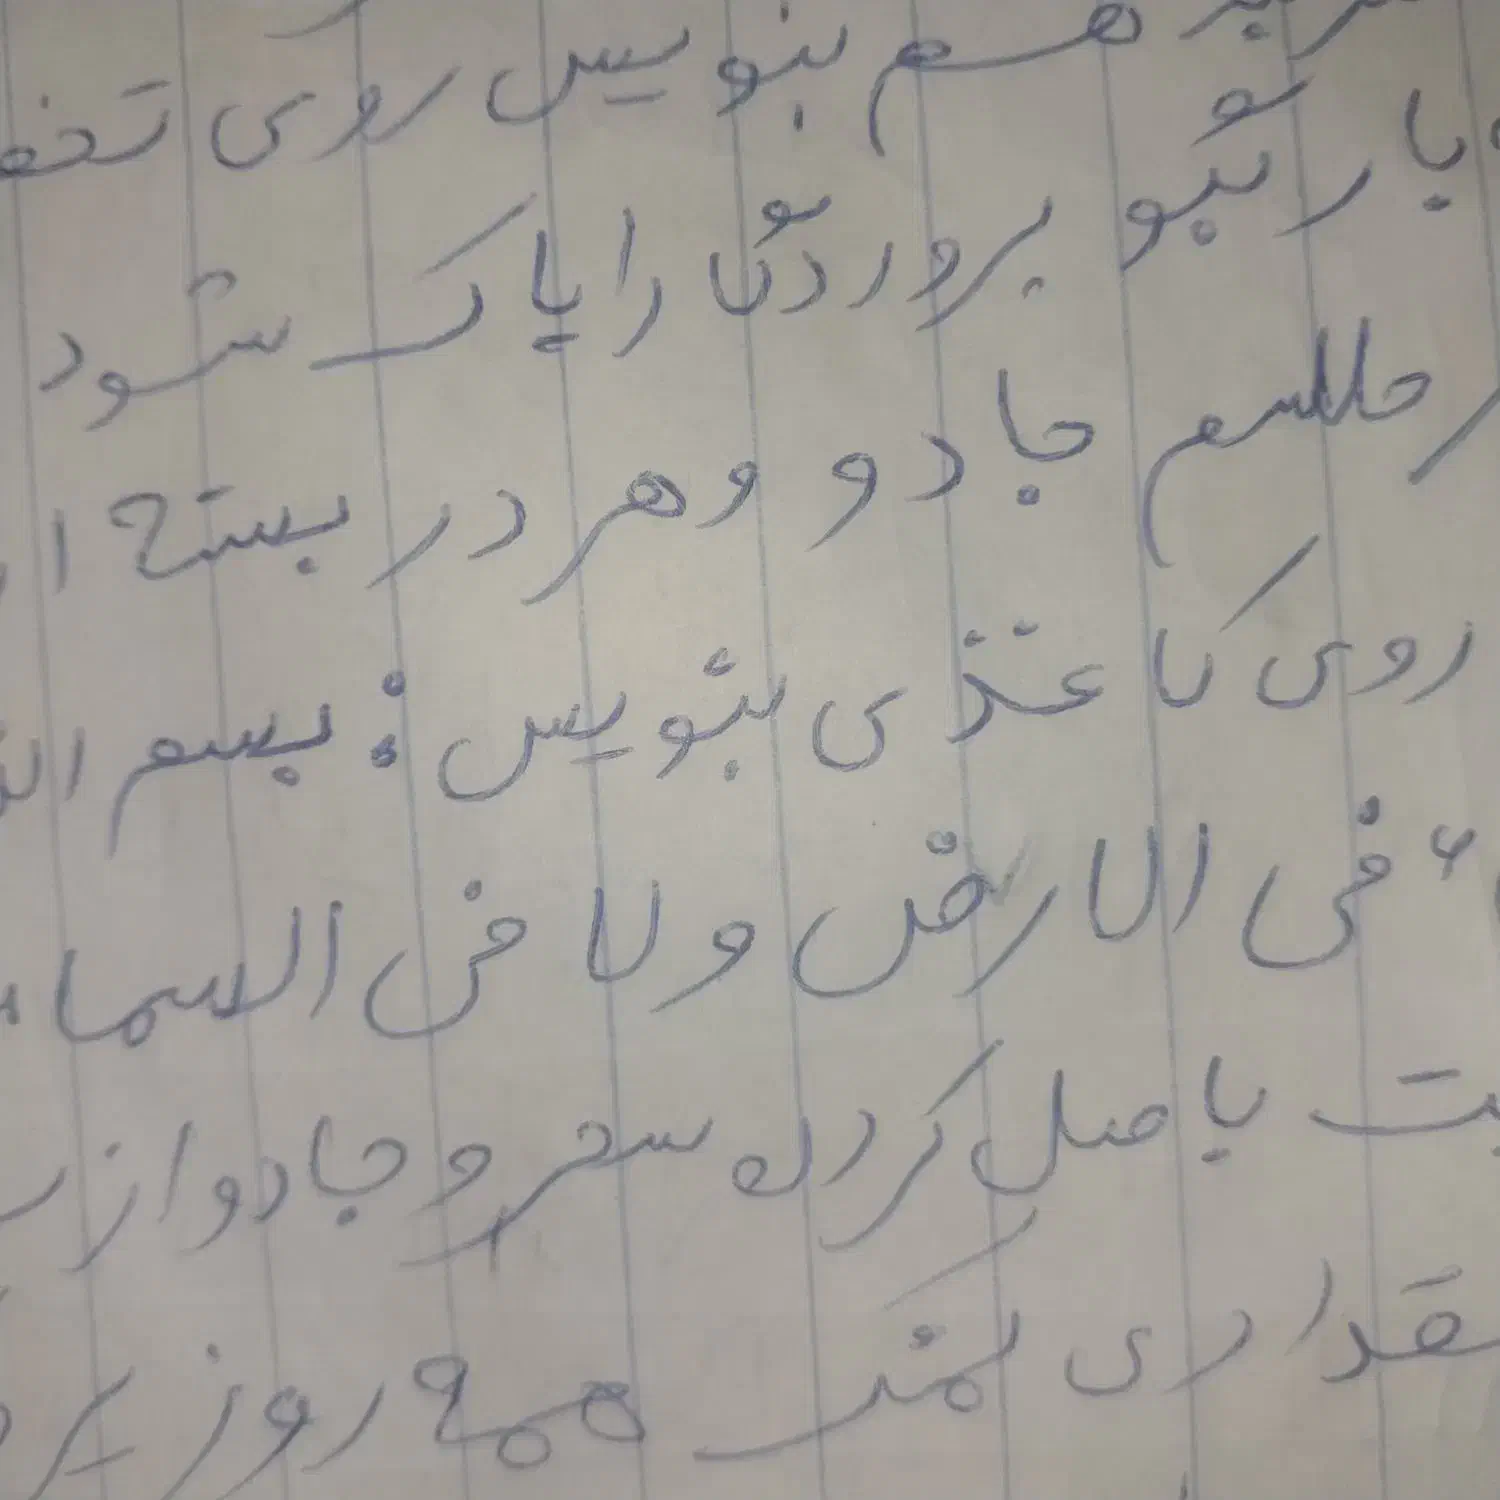 هم بنویس روی تخم
یا رئبو بروردئا را پاک شود
طلسم جادو و هر در بسته ا
روی کاغذی بنویس : بسم ال
ء فی الارض ولا فی السماء
یا صل کردن سحر و جادو از
قداری نمک همه روز بر